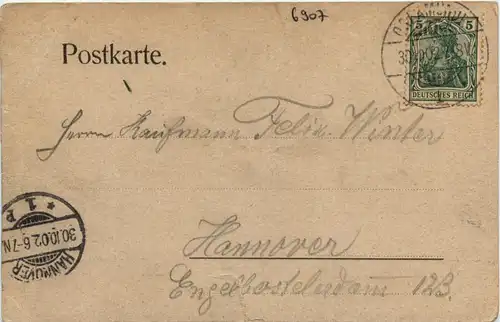 6907
Postkarte.
5 5
DEUTSCHES REICH
Herrn Kaufmann Felix Winter
Hannover
Engelbostelerdam 123.
HANNOVER
30.10.02.6-7N.
* 1 *